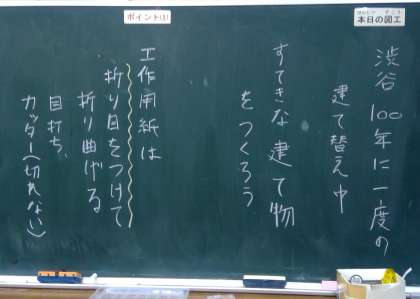 本日の図工
渋谷 100年に一度の
建て替え中
すてきな建て物
をつくろう
ポイント(1)
工作用紙は
折り目をつけて
折り曲げる
目打ち、
カッター(切れない)